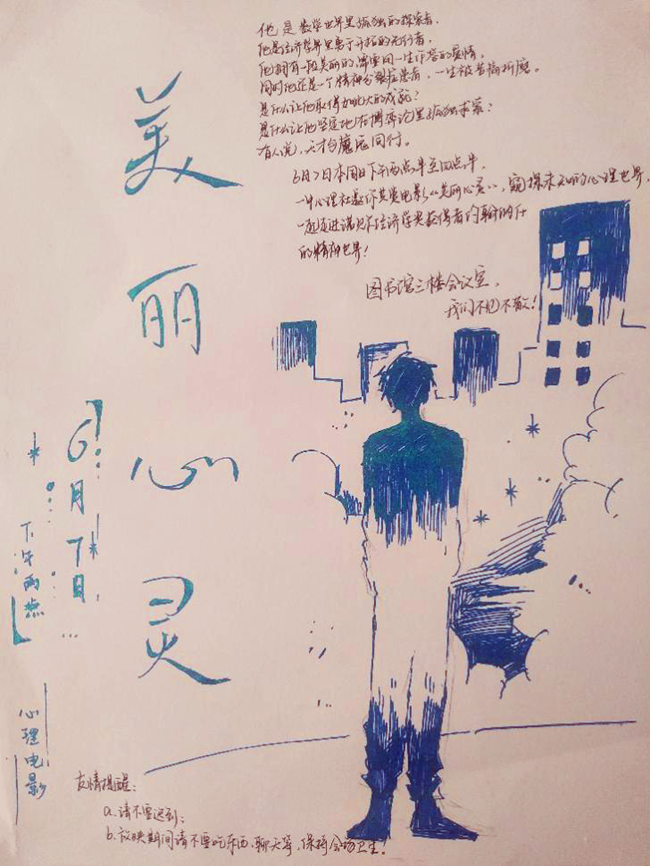 他是数学世界里孤独的探索者.
他是经济学界里勇于开拓的先行者.
他拥有一段美丽的,需要用一生作答的爱情.
同时他还是一个精神分裂症患者,一生被苦痛折磨。
是什么让他取得如此大的成就?
是什么让他坚定地在博弈论里孤独求索?
有人说,天才与魔鬼同行。
6月7日本周日下午两点半至四点半
心理社邀你共赏电影《美丽心灵》,窥探未知的心理世界,
一起走进诺贝尔经济学奖获得者约翰纳什
的精神世界!
图书馆三楼会议室,
我们不见不散!
美丽心灵
6月7日
下午两点半
心理电影
友情提醒:
a.请不要迟到;
b.放映期间请不要吃东西.聊天等,保持会场卫生!